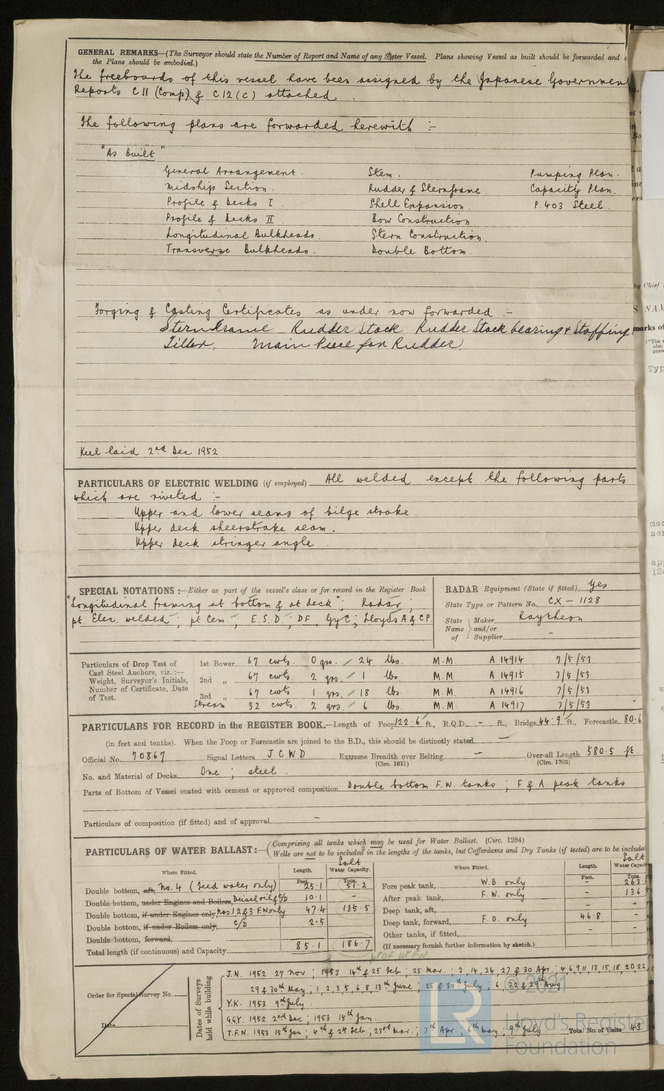 GENERAL REMARKS—(The Surveyor should state the Number of Report and Name of any Sister Vessel. Plans showing Vessel as built should be forwarded and
the Plans should be embodied.)
The freeboards of this vessel have been assigned by the Japanese Government
Reports C11 (Comp) & C12(c) attached.
The following plans are forwarded herewith :-
"As built"
General Arrangement. Stem. Pumping Plan.
Midship Section. Rudder & Sternframe Capacity Plan.
Profile & Decks I. Shell Expansion P.403 Steel.
Profile & Decks II Bow Construction
Longitudinal Bulkheads. Stern Construction.
Transverse Bulkheads. Double Bottom.
Forging & Casting Certificates as under now forwarded :-
Sternframe Rudder Stock Rudder Stock bearing & Stuffing
Tiller. Main Piece for Rudder.
Keel laid 2nd Dec 1952
PARTICULARS OF ELECTRIC WELDING (if employed) All welded except the following parts
which are riveted :-
Upper and lower seams of bilge strake
Upper deck sheerstrake seam.
Upper deck stringer angle.
SPECIAL NOTATIONS :—Either as part of the vessel's class or for record in the Register Book
"Longitudinal framing at bottom & at deck"; Radar,
pt. Elec. welded; pt Cem; E.S.D; DF; GyC; Lloyds A & CP.
RADAR Equipment (State if fitted) Yes
State Type or Pattern No. CX-1128
State Name of Maker and/or Supplier Raytheon -
Particulars of Drop Test of Cast Steel Anchors, viz.:— Weight, Surveyor's Initials, Number of Certificate, Date of Test.
1st Bower 67 cwts. 0 qrs. / 24 lbs. M.M A 14914 7/5/53
2nd „ 67 cwts. 2 qrs. / 1 lbs. M.M A 14915 7/5/53
3rd „ 67 cwts. 1 qrs. / 18 lbs. M.M A 14916 7/5/53
Stream 32 cwts. 2 qrs. / 6 lbs. M.M A 14917 7/5/53
PARTICULARS FOR RECORD in the REGISTER BOOK.—Length of Poop 122.6 ft., R.Q.D. - ft., Bridge 44.9 ft., Forecastle 80.6
(in feet and tenths). When the Poop or Forecastle are joined to the B.D., this should be distinctly stated -
Official No. 70867 Signal Letters JCWD Extreme Breadth over Belting - Over-all Length 580.5 ft
(Circ. 1611) (Circ. 1703)
No. and Material of Decks One; steel
Parts of Bottom of Vessel coated with cement or approved composition Double bottom F.W. tanks; F & A peak tanks
Particulars of composition (if fitted) and of approval -
PARTICULARS OF WATER BALLAST:— (Comprising all tanks which may be used for Water Ballast. (Circ. 1284)
Wells are not to be included in the lengths of the tanks, but Cofferdams and Dry Tanks (if tested) are to be included
Where Fitted. Length. Salt Water Capacity. Where Fitted. Length. Salt Water Capacity.
Feet. Tons.
Double bottom, aft, No.4 (Feed water only) 25.1 51.2 Fore peak tank, W.B only - 263.
Double bottom, under Engines and Boilers, Diesel oil & C/D 10.1 - After peak tank, F.W. only - 136.
Double bottom, if under Engines only, Nos 1 2 & 3 F.W only 47.4 135.5 Deep tank, aft,
Double bottom, if under Boilers only, C/D 2.5 Deep tank, forward, F.O. only 46.8 -
Double bottom, forward, Other tanks, if fitted,
Total length (if continuous) and Capacity 85.1 186.7 (If necessary furnish further information by sketch.)
Order for Special Survey No.
Date
Dates of Surveys held while building
J.N. 1952 27 Nov; 1953 14th & 25 Feb; 25 Mar.; 2, 14, 24, 27 & 30 Apr; 4 6 9 11 13 15 18 20 22
29 & 30th May; 1, 2, 3, 5, 6, 8 13th June; 25 & 30th July; 6, 22 & 29th Aug
Y.K. 1953 9th July
GGY. 1952 2nd Dec; 1953 15th Jan.
T.F.N. 1953 15th Jan; 4th & 24 Feb; 23rd Mar.; 7th Apr. 6th May; 9th July Total No. of Visits 43
© 2021
Lloyd's Register
Foundation
LR